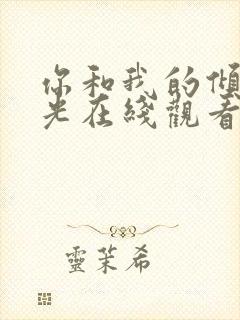 你和我的傾
光在綫觀看
靈茉希